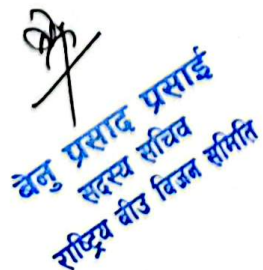 बेनु प्रसाद प्रसाई
सदस्य सचिव
राष्ट्रिय बीउ विजन समिति